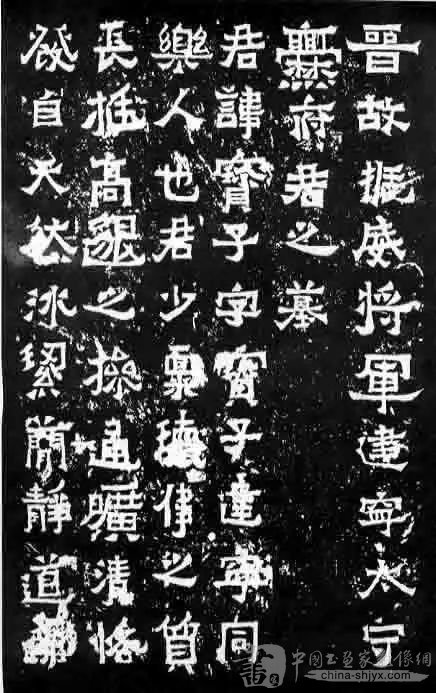 晉故振威将軍建寧太守
爨府君之墓
君諱寶子字寶子建寧同
樂人也君少稟瓌偉之質
長挺高邈之操通曠清恪
發自天然冰絜簡靜道兼
中国书画家影像网
china-shjyx.com